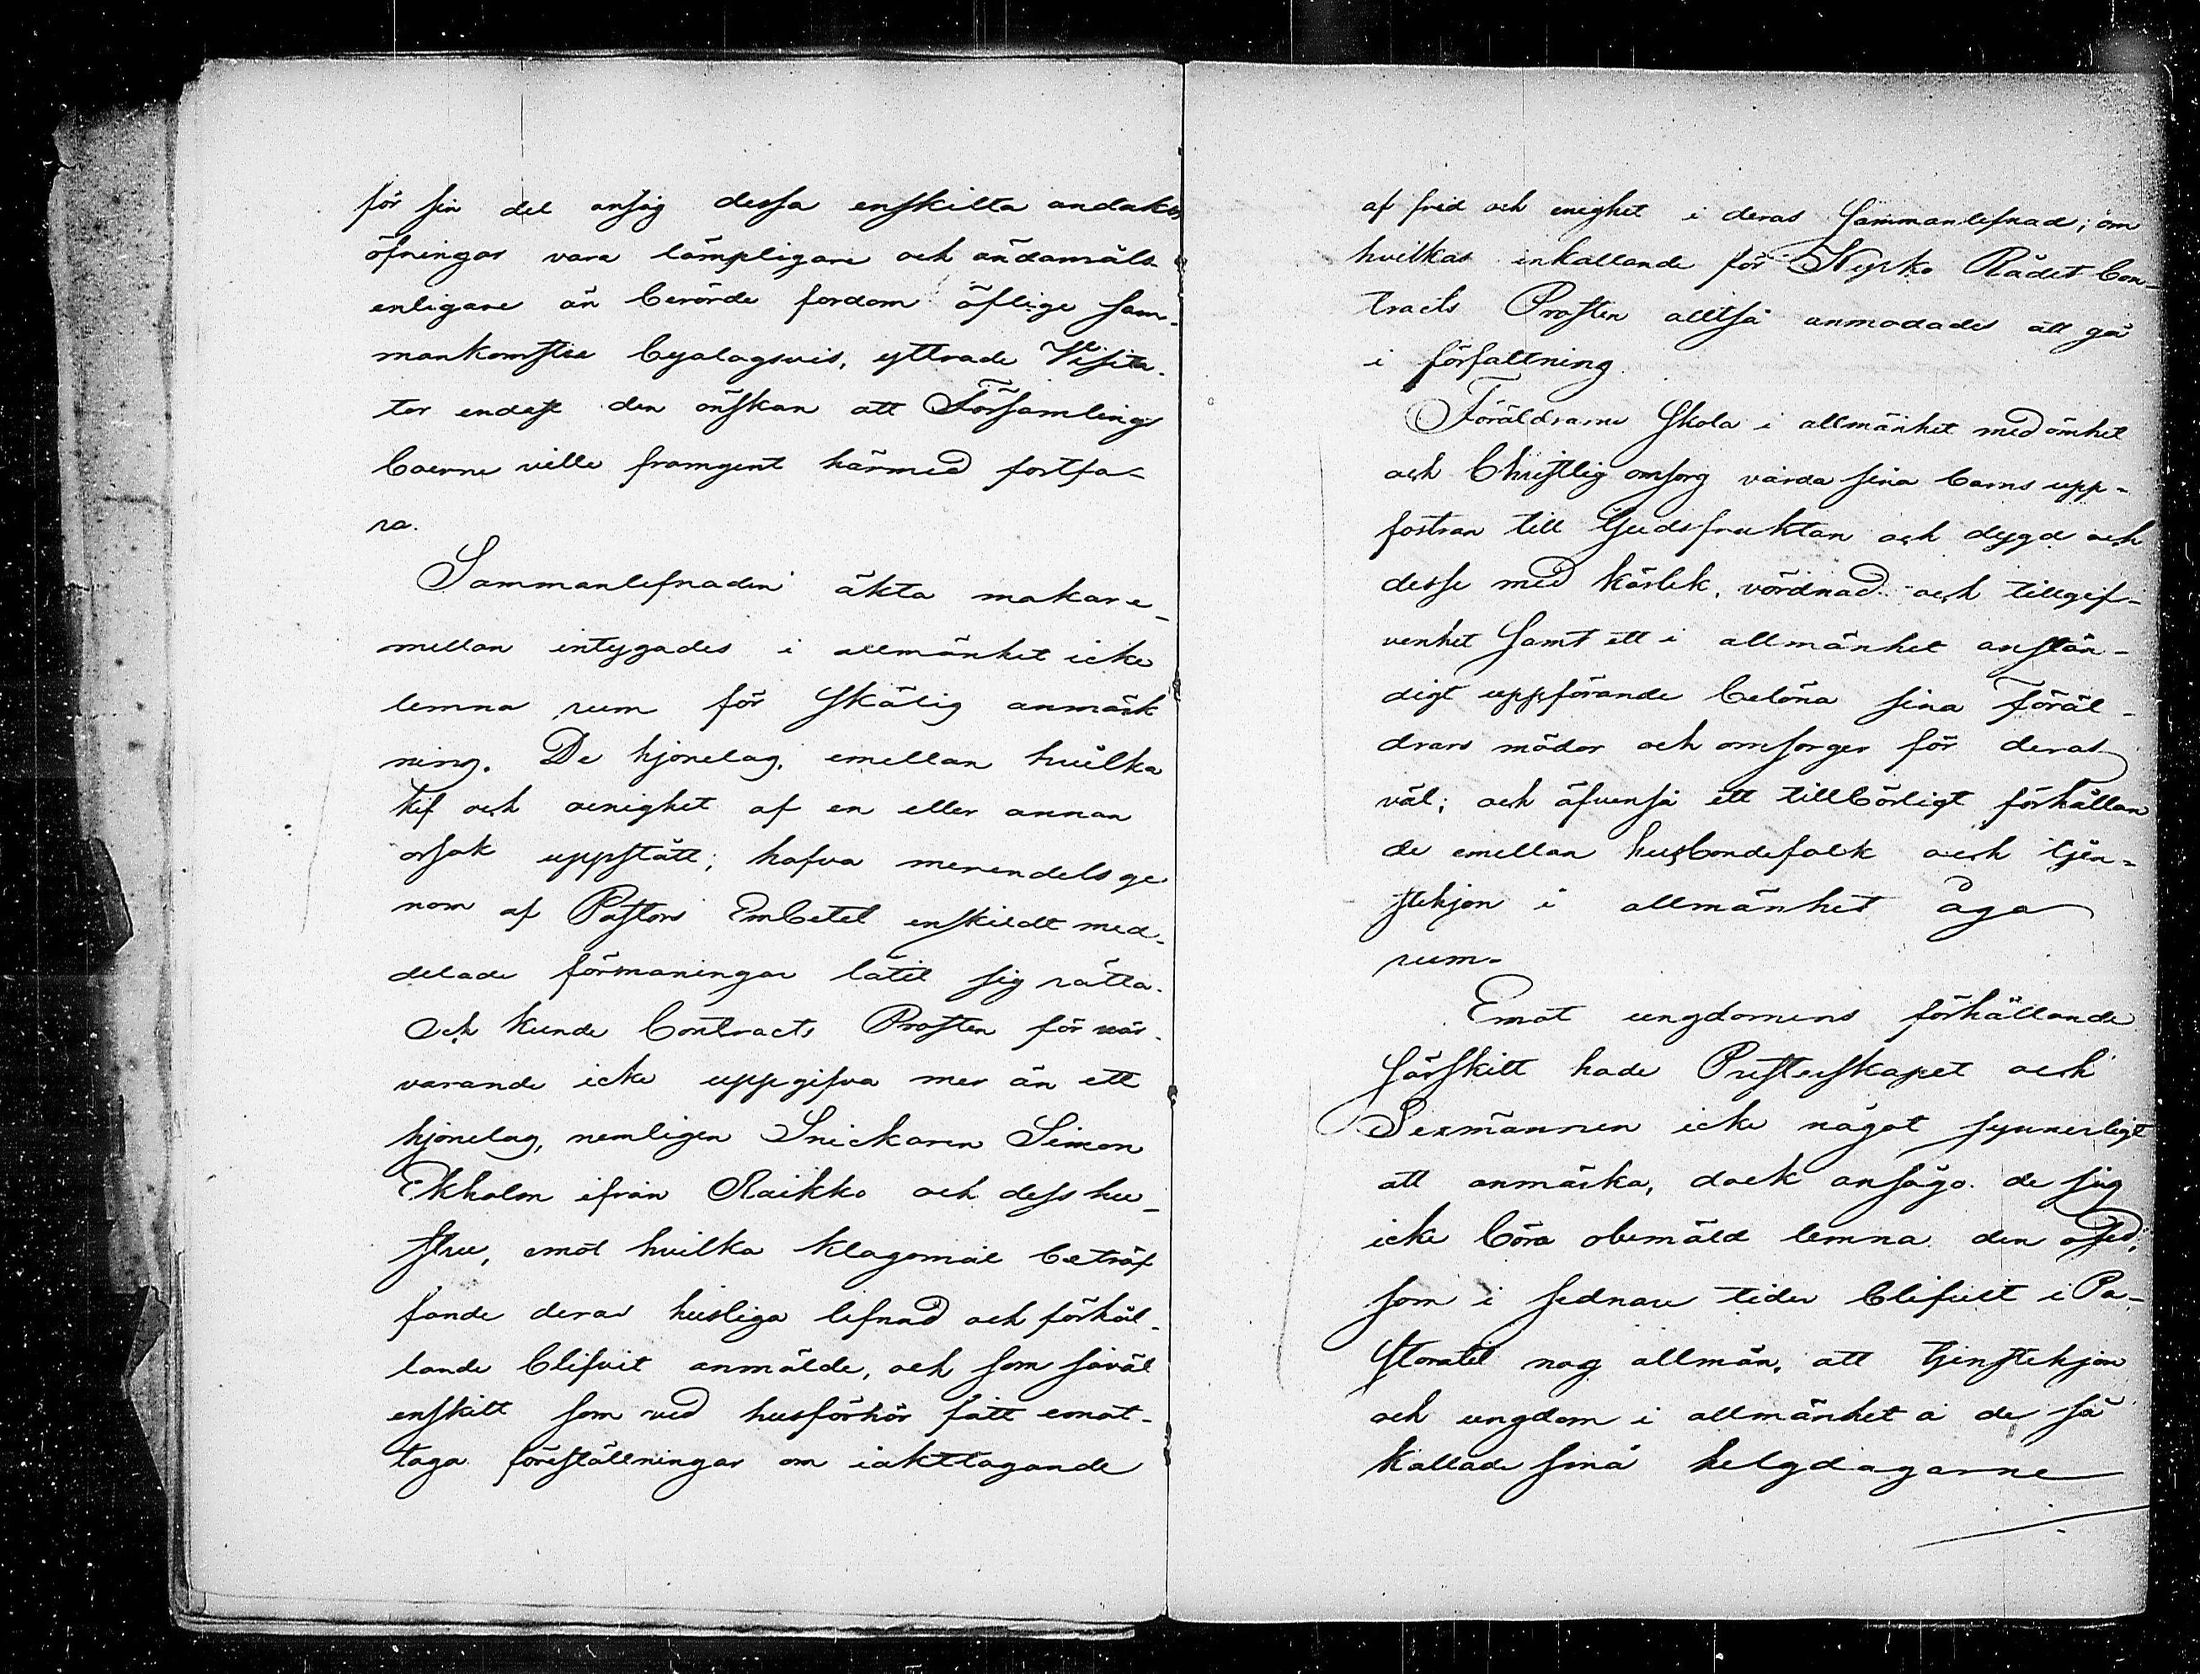 för sin del ansåg dessa enskilta andakts
öfningar vara lämpligare och ändamåls
enligare än berörde fordom öflige sam-
mankomster byalagsvis, yttrade Visita-
tor endast den önskan att Församlings
boerne ville framgent härmed fortfa-
ra.
Sammanlefnaden äkta makar e-
mellan intygades i allmänhet icke
lemna rum för skälig anmärk
ning. De hjonelag, emellan hvilka
kif och oenighet af en eller annan
orsak uppstått, hafva merendels ge
nom af Pastors Embetet enskildt med-
delade förmaningar låtit sig rätta.
Och kunde Contracts Prosten för när-
varande icke uppgifva mer än ett
hjonelag, nemligen Snickaren Simon
Ekholm ifrån Raikko och dess hu-
stru, emot hvilka klagomål beträf
fande deras husliga lefnad och förhål-
lande blifvit anmälde, och som såväl
enskilt som ved husförhör fått emot-
taga föreställningar om iakttagande
af frid och enighet i deras sammanlefnad; om
hvilkas inkallande för Kyrko Rådet Con-
tracts Prosten alltså anmodades att gå
i författning.
Föräldrarne skola i allmänhet med ömhet
och Christlig omsorg vårda sina barns upp-
fostran till Gudsfruktan och dygd och
desse med kärlek, vördnad och tillgif-
venhet samt ett i allmänhet anstän-
digt uppförande belöna sina Föräl-
drars mödor och omsorger för deras
väl; och äfvenså ett tillbörligt förhållan
de emellan husbondefolk och tjen-
stehjon i allmänhet äga
rum.
Emot ungdomens förhållande
särskilt hade Presterskapet och
Sexmännen icke något synnerligt
att anmärka, dock ansågo de sig
icke böra obemäld lemna den osed,
som i sednare tider blifvit i Pa-
storatet nog allmän, att tjenstehjon
och ungdom i allmänhet å de så
kallade små helgdagarne